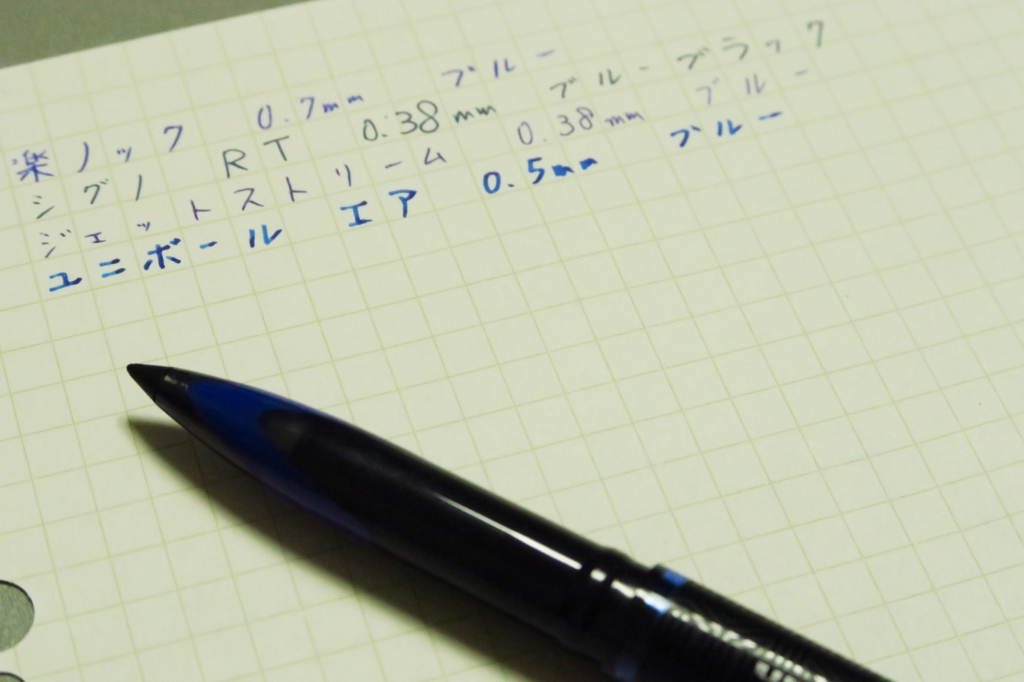 楽ノック 0.7mm ブルー
シグノ RT 0.38mm ブルーブラック
ジェットストリーム 0.38mm ブルー
ユニボール エア 0.5mm ブルー